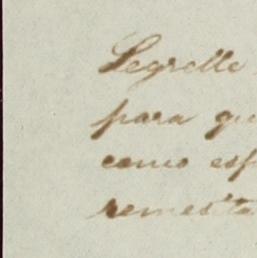 Segrelle
para qu
como esp
remesta